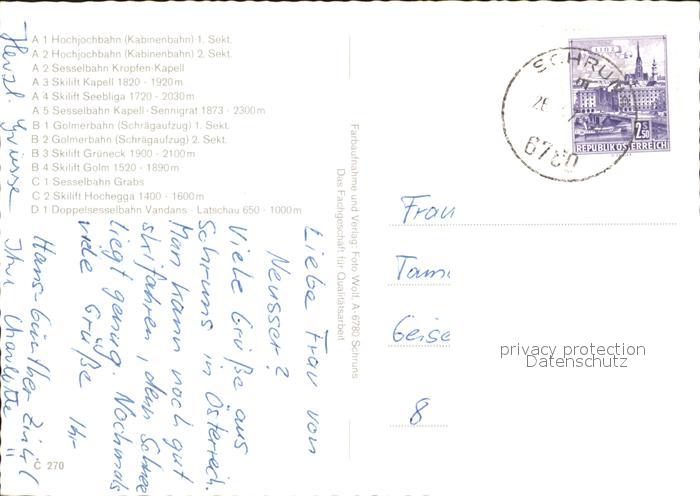 A 1 Hochjochbahn (Kabinenbahn) 1. Sekt.
A 2 Hochjochbahn (Kabinenbahn) 2. Sekt.
A 2 Sesselbahn Kropfen-Kapell
A 3 Skilift Kapell 1820 - 1920 m
A 4 Skilift Seebliga 1720 - 2030 m
A 5 Sesselbahn Kapell - Sennigrat 1873 - 2300 m
B 1 Golmerbahn (Schrägaufzug) 1. Sekt.
B 2 Golmerbahn (Schrägaufzug) 2. Sekt.
B 3 Skilift Grüneck 1900 - 2100 m
B 4 Skilift Golm 1520 - 1890 m
C 1 Sesselbahn Grabs
C 2 Skilift Hochegga 1400 - 1600 m
D 1 Doppelsesselbahn Vandans - Latschau 650 - 1000 m
Liebe Frau von
Neusser?
Viele Grüße aus
Schruns in Österreich.
Man kann noch gut
skifahren, denn Schnee
liegt genug. Nochmals
viele Grüße Ihr
Hans-Günther
Herzl. Grüsse Ihre Charlotte
C 270
Farbaufnahme und Verlag: Foto Wolf, A-6780 Schruns
Das Fachgeschäft für Qualitätsarbeit
LINZ
2.50
REPUBLIK ÖSTERREICH
SCHRUN
6780
Frau
Tam
Geise
8
privacy protection
Datenschutz